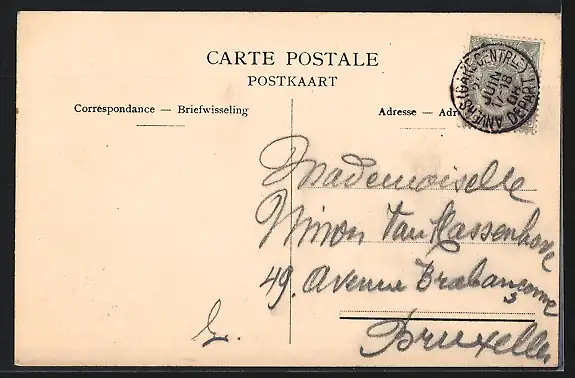 CARTE POSTALE
POSTKAART
Correspondance — Briefwisseling
Adresse — Adr
ANVERS (GARE CENTRALE) DEPART
JUIN
17-18
Mademoiselle
Ninon Van Kassenhove
49. Avenue Brabançonne
Bruxelles